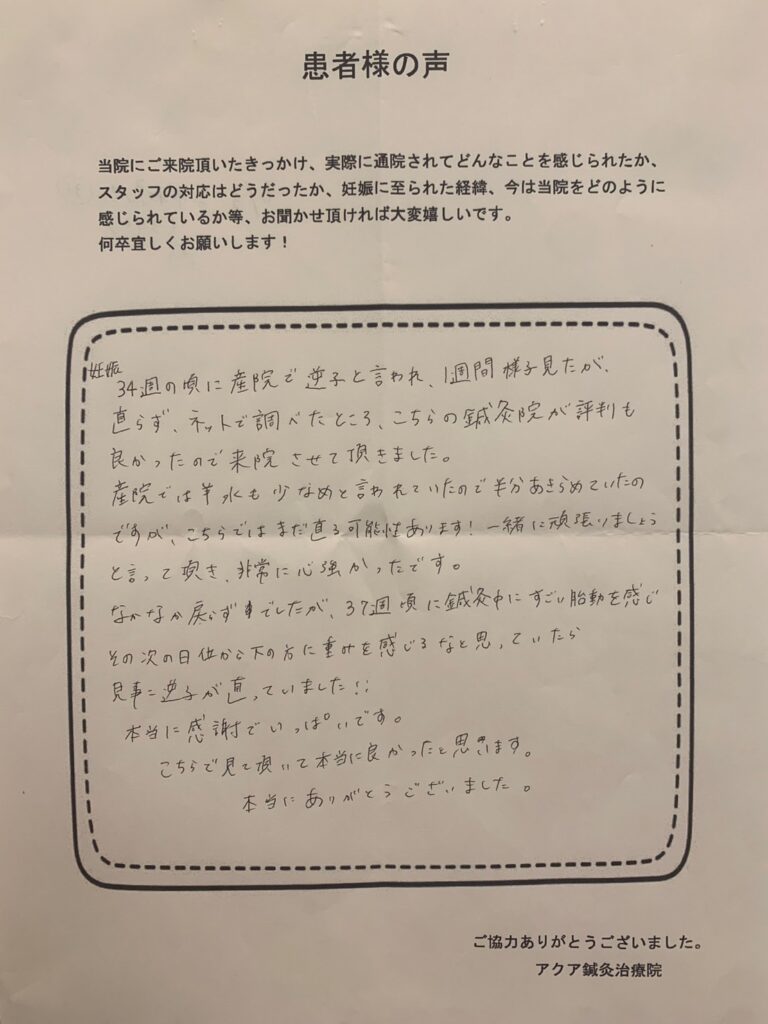 患者様の声
当院にご来院頂いたきっかけ、実際に通院されてどんなことを感じられたか、
スタッフの対応はどうだったか、妊娠に至られた経緯、今は当院をどのように
感じられているか等、お聞かせ頂ければ大変嬉しいです。
何卒宜しくお願いします！
妊娠
34週の頃に産院で逆子と言われ、1週間様子見たが、
直らず、ネットで調べたところ、こちらの鍼灸院が評判も
良かったので来院させて頂きました。
産院では羊水も少なめと言われていたので半分あきらめていたの
ですが、こちらではまだ直る可能性あります！一緒に頑張りましょう
と言って頂き、非常に心強かったです。
なかなか戻らずでしたが、37週頃に鍼灸中にすごい胎動を感じ
その次の日位から下の方に重みを感じるなと思っていたら
見事に逆子が直っていました!!
本当に感謝でいっぱいです。
こちらで見て頂いて本当に良かったと思います。
本当にありがとうございました。
ご協力ありがとうございました。
アクア鍼灸治療院